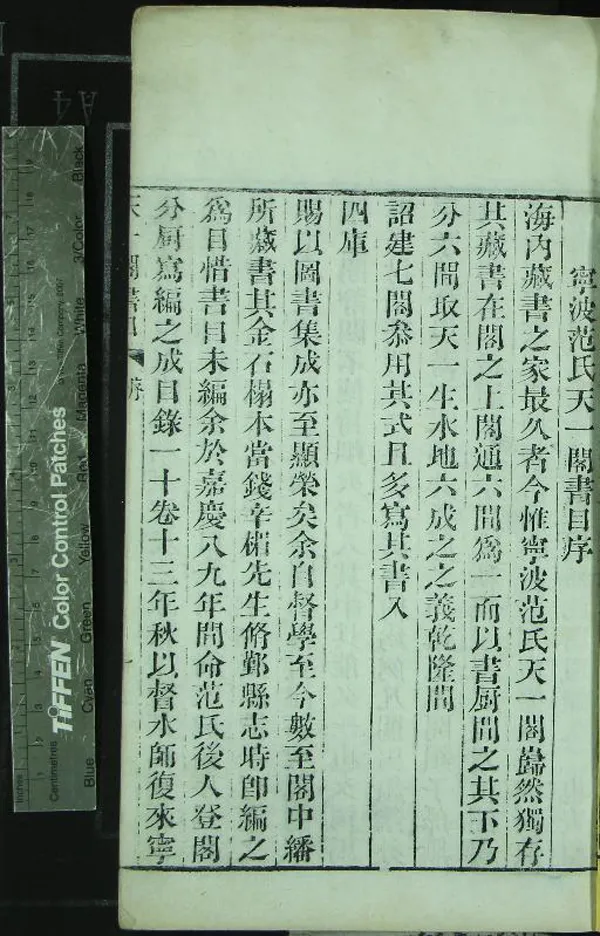 寧波范氏天一閣書目序
海內藏書之家最久者今惟寧波范氏天一閣巋然獨存
其藏書在閣之上閣通六間爲一而以書厨間之其下乃
分六間取天一生水地六成之之義乾隆間
詔建七閣叅用其式且多寫其書入
四庫
賜以圖書集成亦至顯榮矣余自督學至今數至閣中繙
所藏書其金石榻本當錢辛楣先生脩鄞縣志時卽編之
爲目惜書目未編余於嘉慶八九年間命范氏後人登閣
分厨寫編之成目錄一十卷十三年秋以督水師復來寧
天一閣書目 序
A4
TIFFEN Color Control Patches
Blue
Cyan
Green
Yellow
Red
Magenta
White
3/Color
Black
Centimetres
Inches